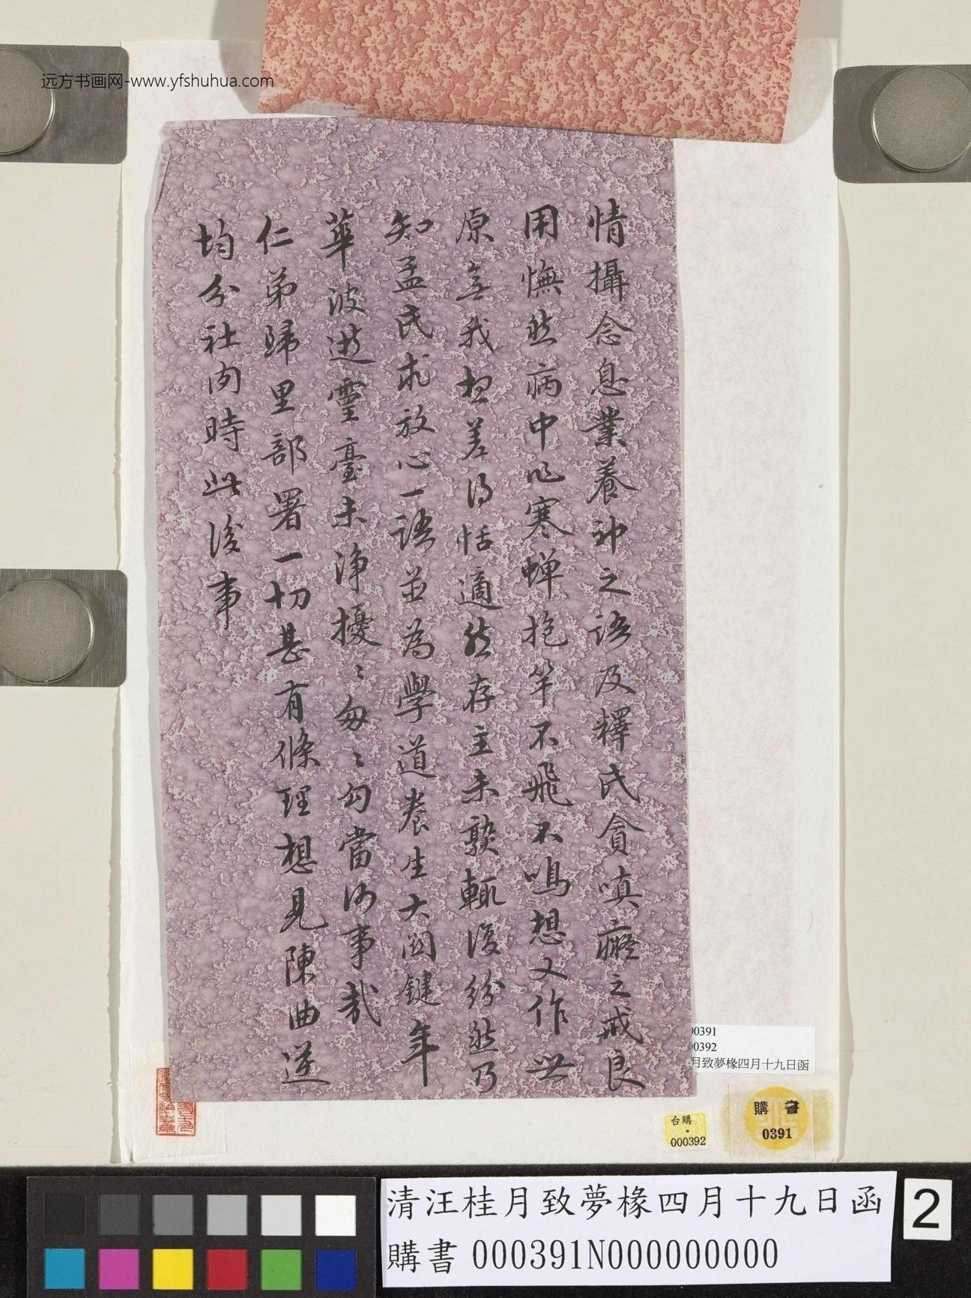 远方书画网-www.yfshuhua.com
情攝念息業養神之語及釋氏貪嗔癡之戒良
用憮然病中作寒蟬抱竿不飛不鳴想又作世
原無我想差得恬適然存主未熟輒復紛然乃
知孟氏求放心一語並為學道養生大関鍵年
華波逝靈臺未淨擾〻匆〻勾當何事哉
仁弟歸里部署一切甚有條理想見陳曲逆
均分社肉時此後事
00391
00392
月致夢椽四月十九日函
購書
0391
台購
000392
清汪桂月致夢椽四月十九日函
購書 000391N000000000
2